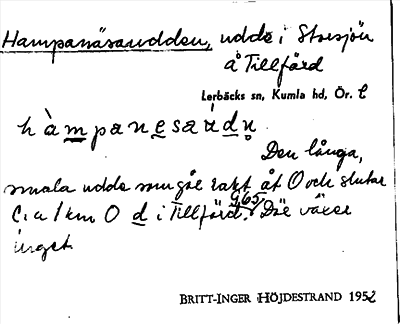 Hampanäsaudden, udde i Storsjön
å Tillfärd
Lerbäcks sn, Kumla hd, Ör. l
hàmpanesaúdn̥
Den långa,
smala udde som går rakt åt O och slutar
c:a 1 km O d i Tillfärd. 965/ Där växer
inget
BRITT-INGER HÖJDESTRAND 1952